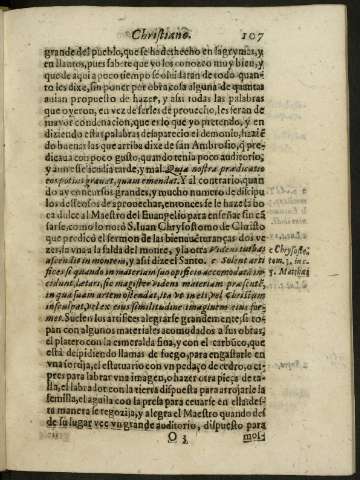 Christiano. 107
grande del pueblo, que se ha deshecho en lagrymas, y
en llantos, pues sabete que yo los conozco muy bien, y
que de aqui a poco tiempo se oluidaran de todo quan-
to les dixe, sin poner por obra cosa alguna de quantas
auian propuesto de hazer, y asi todas las palabras
que oyeron, en vez de serles de prouecho, les seran de
mayor condenacion, que es lo que yo pretendo, y en
diziendo estas palabras desaparecio el demonio, haziẽ
do buenas las que arriba dixe de san Ambrosio, q̃ pre-
dicaua con poco gusto, quando tenia poco auditorio,
y aun este acudia tarde, y mal. Quia nostra prædicatio
eos potius grauat, quam emendat. Y al contrario, quan
do ay concursos grandes, y mucho numero de discipu
los desseosos de aprouechar, entonces se le haze la bo
ca dulce al Maestro del Euangelio para enseñar sin cã
sarse, como lo notò S. Iuan Chrysostomo de Christo
que predicò el sermon de las bienauenturanças dos ve
zes, la vna a la falda del monte, y la otra Videns turbas
ascendit in montem, y asi dize el Santo. e Solent arti
fices si quando in materiam suo opificio accomodatã in
cidunt, lætari, sic magister videns materiam præsentẽ,
in qua suam artem ostendat, ita vt in eis, vel Christum
insculpat, vel ex eius similitudine imaginem eius for-
met. Suelen los artifices alegrarse grandemente, si to-
pan con algunos materiales acomodados a sus obras,
el platero con la esmeralda fina, y con el carbũco, que
està despidiendo llamas de fuego, para engastarle en
vna sortija, el estatuario con vn pedaço de cedro, o ci
pres para labrar vna imagen, o hazer otra pieça de ta-
lla, el labrador con la tierra dispuesta para arrojarle la
semilla, el aguila con la presa para ceuarse en ella: des-
ta manera se regozija, y alegra el Maestro quando des
de su lugar vee vn grande auditorio, dispuesto para
O 3 mol-
e Chrysosto.
tom. 3. in c.
5. Matthæi